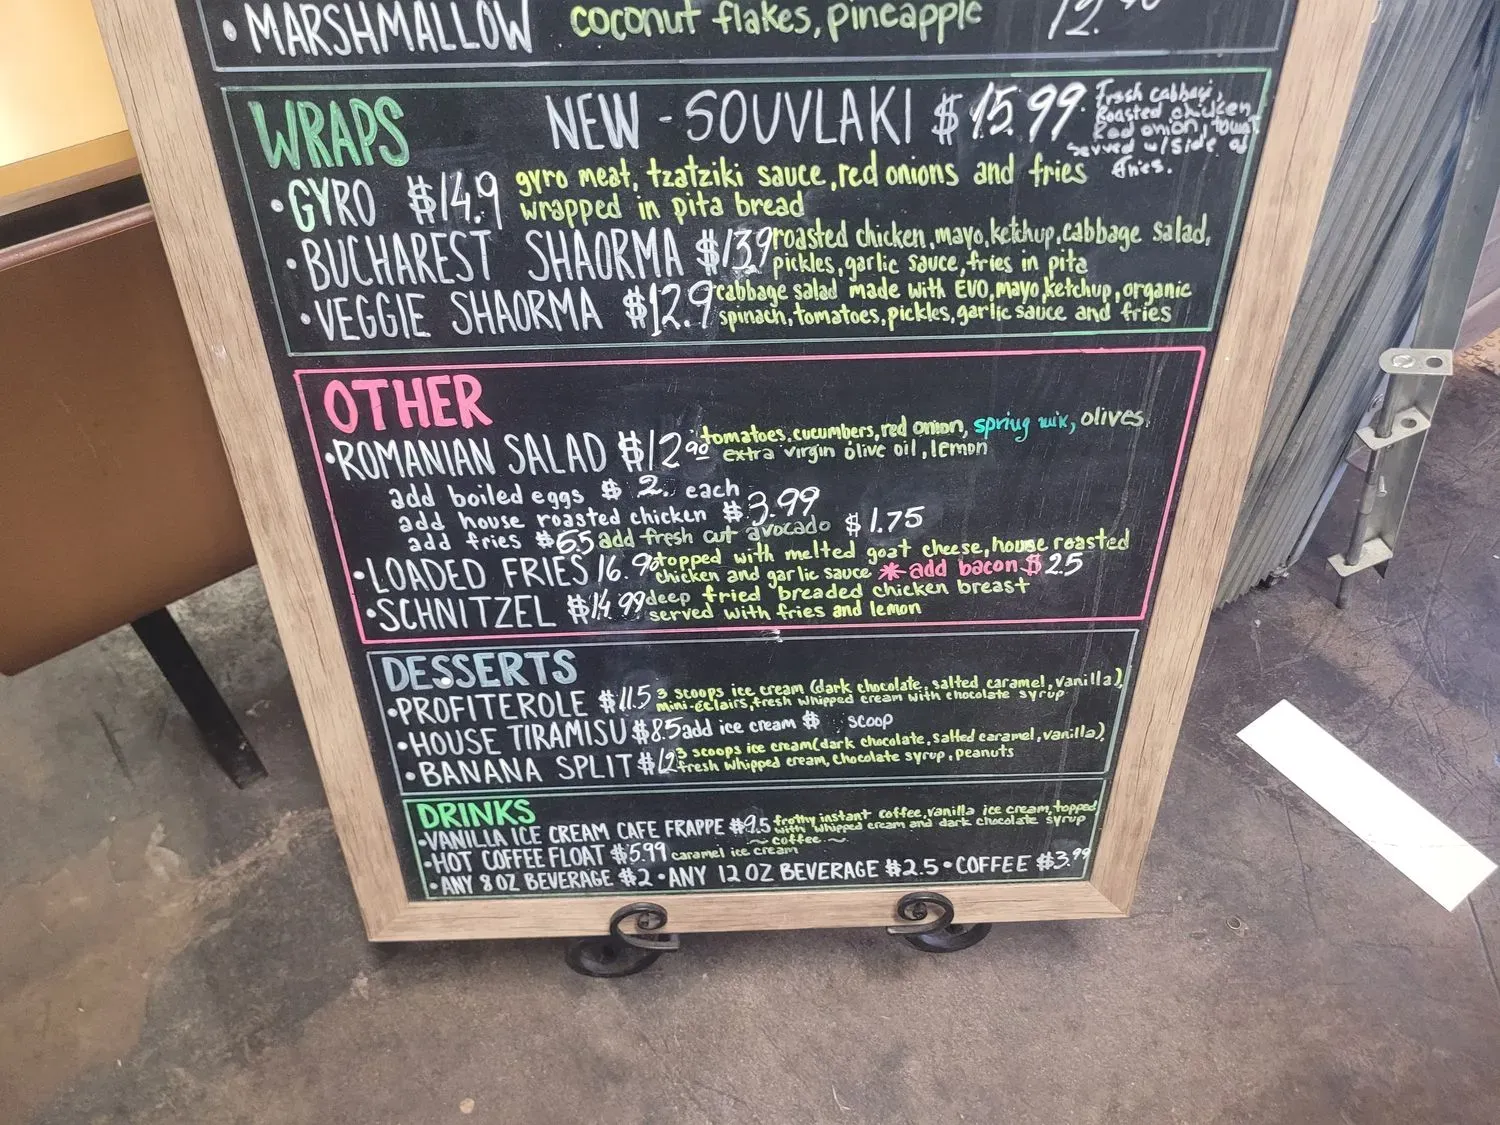 • MARSHMALLOW coconut flakes, pineapple 12.90
WRAPS NEW - SOUVLAKI $15.99 Fresh cabbage,
Roasted chicken,
Red onion,
served w/side of
fries.
• GYRO $14.9 gyro meat, tzatziki sauce, red onions and fries
wrapped in pita bread
• BUCHAREST SHAORMA $13.9 roasted chicken, mayo, ketchup, cabbage salad,
pickles, garlic sauce, fries in pita
• VEGGIE SHAORMA $12.9 cabbage salad made with EVO, mayo, ketchup, organic
spinach, tomatoes, pickles, garlic sauce and fries
OTHER
• ROMANIAN SALAD $12.90 tomatoes, cucumbers, red onion, spring mix, olives,
extra virgin olive oil, lemon
add boiled eggs $2. each
add house roasted chicken $3.99
add fries $6.5 add fresh cut avocado $1.75
• LOADED FRIES 16.90 topped with melted goat cheese, house roasted
chicken and garlic sauce * add bacon $2.5
• SCHNITZEL $14.99 deep fried breaded chicken breast
served with fries and lemon
DESSERTS
• PROFITEROLE $11.5 3 scoops ice cream (dark chocolate, salted caramel, vanilla),
mini-éclairs, fresh whipped cream with chocolate syrup
• HOUSE TIRAMISU $8.5 add ice cream $ scoop
• BANANA SPLIT $12 3 scoops ice cream (dark chocolate, salted caramel, vanilla),
fresh whipped cream, chocolate syrup, peanuts
DRINKS
• VANILLA ICE CREAM CAFE FRAPPE $9.5 frothy instant coffee, vanilla ice cream, topped
with whipped cream and dark chocolate syrup
• HOT COFFEE FLOAT $5.99 ~ coffee ~
caramel ice cream
• ANY 8 OZ BEVERAGE $2 • ANY 12 OZ BEVERAGE $2.5 • COFFEE $3.99